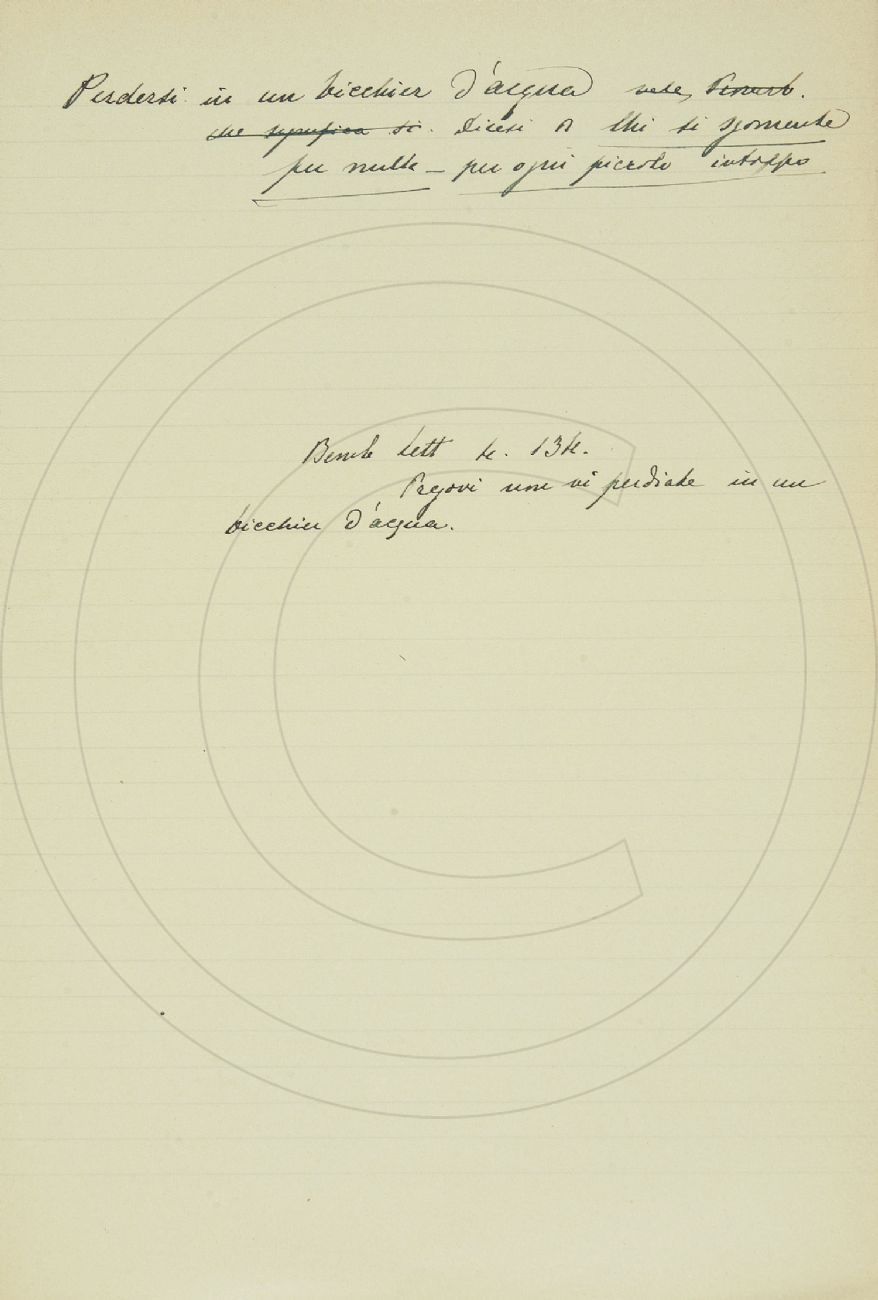 Perdersi in un bicchier d'acqua vale, Proverb.
che significa si. Dicesi di Chi si sgomenta
per nulla – per ogni piccolo intoppo
Bemb Lett
Pregovi non vi perdiate in un
bicchier d'acqua.